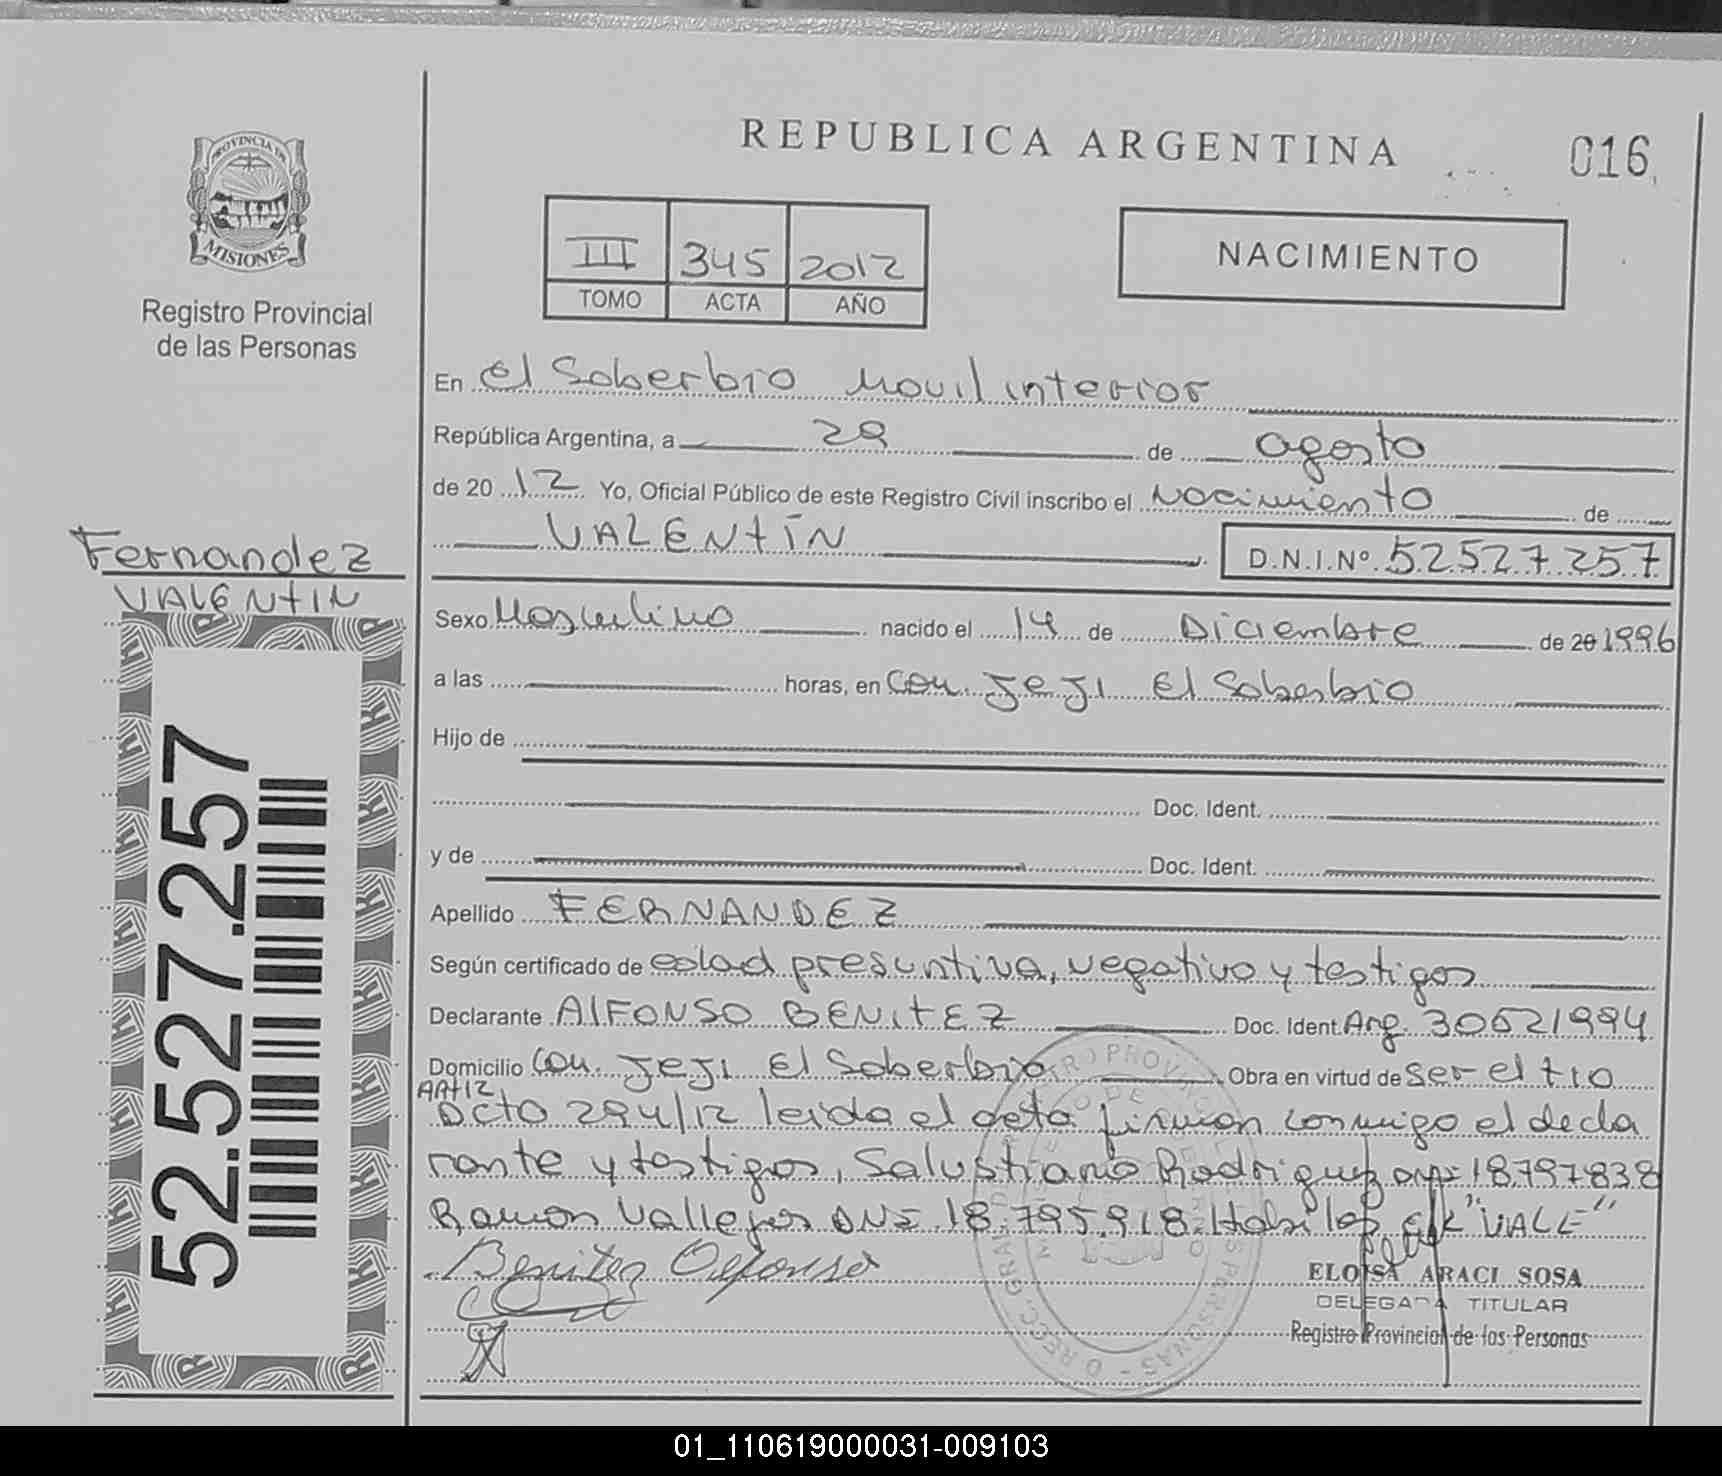 REPUBLICA ARGENTINA
016
PROVINCIA DE
MISIONES
Registro Provincial
de las Personas
III 345 2012
TOMO ACTA AÑO
NACIMIENTO
En El Soberbio Movil interior
República Argentina, a 29 de agosto
de 2012 Yo, Oficial Público de este Registro Civil inscribo el Nacimiento de
VALENTÍN D.N.I.Nº 52527257
Fernandez
VALENTIN
Sexo Masculino nacido el 14 de Diciembre de 20 1996
a las horas, en Com. Jeji El Soberbio
Hijo de
Doc. Ident.
y de Doc. Ident.
Apellido FERNANDEZ
Según certificado de edad presuntiva, negativo y testigos
Declarante ALFONSO BENITEZ Doc. Ident. Arg. 30521994
Domicilio Com. Jeji El Soberbio Obra en virtud de ser el tio
Art 12
Dcto 294/12 leida el acta firman conmigo el decla
rante y testigos, Salustiano Rodriguez DNI 18797838
Ramon Vallejos DNI 18.795.918. "VALE"
Benitez Alfonso
ELOISA ARACI SOSA
DELEGADA TITULAR
Registro Provincial de las Personas
52.527.257
01_110619000031-009103